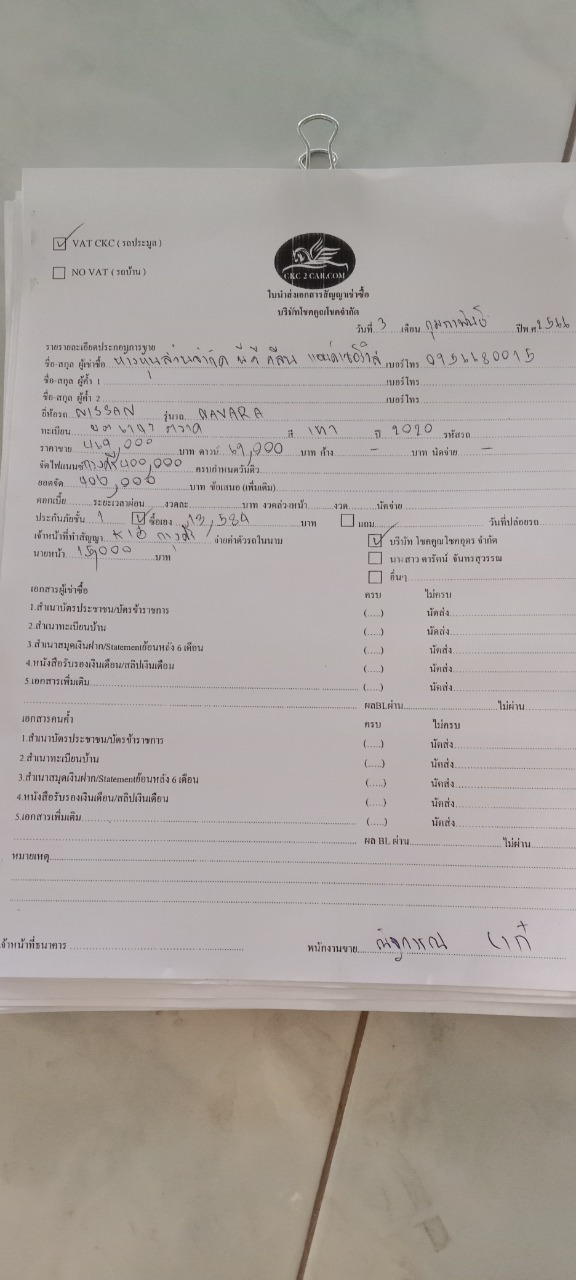 VAT CKC ( รถประมูล )
NO VAT ( รถบ้าน )
CKC 2 CAR.COM
ใบนำส่งเอกสารสัญญาเช่าซื้อ
บริษัทโชคคูณโชคจำกัด
วันที่ 3 เดือน กุมภาพันธ์ ปีพ.ศ 2566
รายรายละเอียดประกอบการขาย
ชื่อ-สกุล ผู้เช่าซื้อ ห้างหุ้นส่วนจำกัด คลีน แอนด์เซอร์วิส เบอร์โทร
ชื่อ-สกุล ผู้ค้ำ 1 เบอร์โทร
ชื่อ-สกุล ผู้ค้ำ 2 เบอร์โทร
ยี่ห้อรถ NISSAN รุ่นรถ NAVARA
ทะเบียน สี เทา ปี 2020 รหัสรถ
ราคาขาย 469,000 บาท ดาวน์ 69,000 บาท ค้าง - บาท นัดจ่าย -
จัดไฟแนนซ์ กรุงศรี 400,000 ครบกำหนดวันดิว
ยอดจัด 400,000 บาท ข้อเสนอ (เพิ่มเติม)
ดอกเบี้ย ระยะเวลาผ่อน งวดละ บาท งวดล่วงหน้า งวด นัดจ่าย
ประกันภัยชั้น 1 ซื้อเอง 13,584 บาท แถม วันที่ปล่อยรถ
เจ้าหน้าที่ทำสัญญา กรุงศรี จ่ายค่าตัวรถในนาม บริษัท โชคคูณโชคอุดร จำกัด
นายหน้า 15,000 บาท นางสาว ดารัตน์ จันทรสุวรรณ
อื่นๆ
เอกสารผู้เช่าซื้อ ครบ ไม่ครบ
1.สำเนาบัตรประชาชน/บัตรข้าราชการ (.....) นัดส่ง
2.สำเนาทะเบียนบ้าน (.....) นัดส่ง
3.สำเนาสมุดเงินฝาก/Statementย้อนหลัง 6 เดือน (.....) นัดส่ง
4.หนังสือรับรองเงินเดือน/สลิปเงินเดือน (.....) นัดส่ง
5.เอกสารเพิ่มเติม (.....) นัดส่ง
ผลBLผ่าน ไม่ผ่าน
เอกสารคนค้ำ ครบ ไม่ครบ
1.สำเนาบัตรประชาชน/บัตรข้าราชการ (.....) นัดส่ง
2.สำเนาทะเบียนบ้าน (.....) นัดส่ง
3.สำเนาสมุดเงินฝาก/Statementย้อนหลัง 6 เดือน (.....) นัดส่ง
4.หนังสือรับรองเงินเดือน/สลิปเงินเดือน (.....) นัดส่ง
5.เอกสารเพิ่มเติม (.....) นัดส่ง
ผล BL ผ่าน ไม่ผ่าน
หมายเหตุ
เจ้าหน้าที่ธนาคาร พนักงานขาย